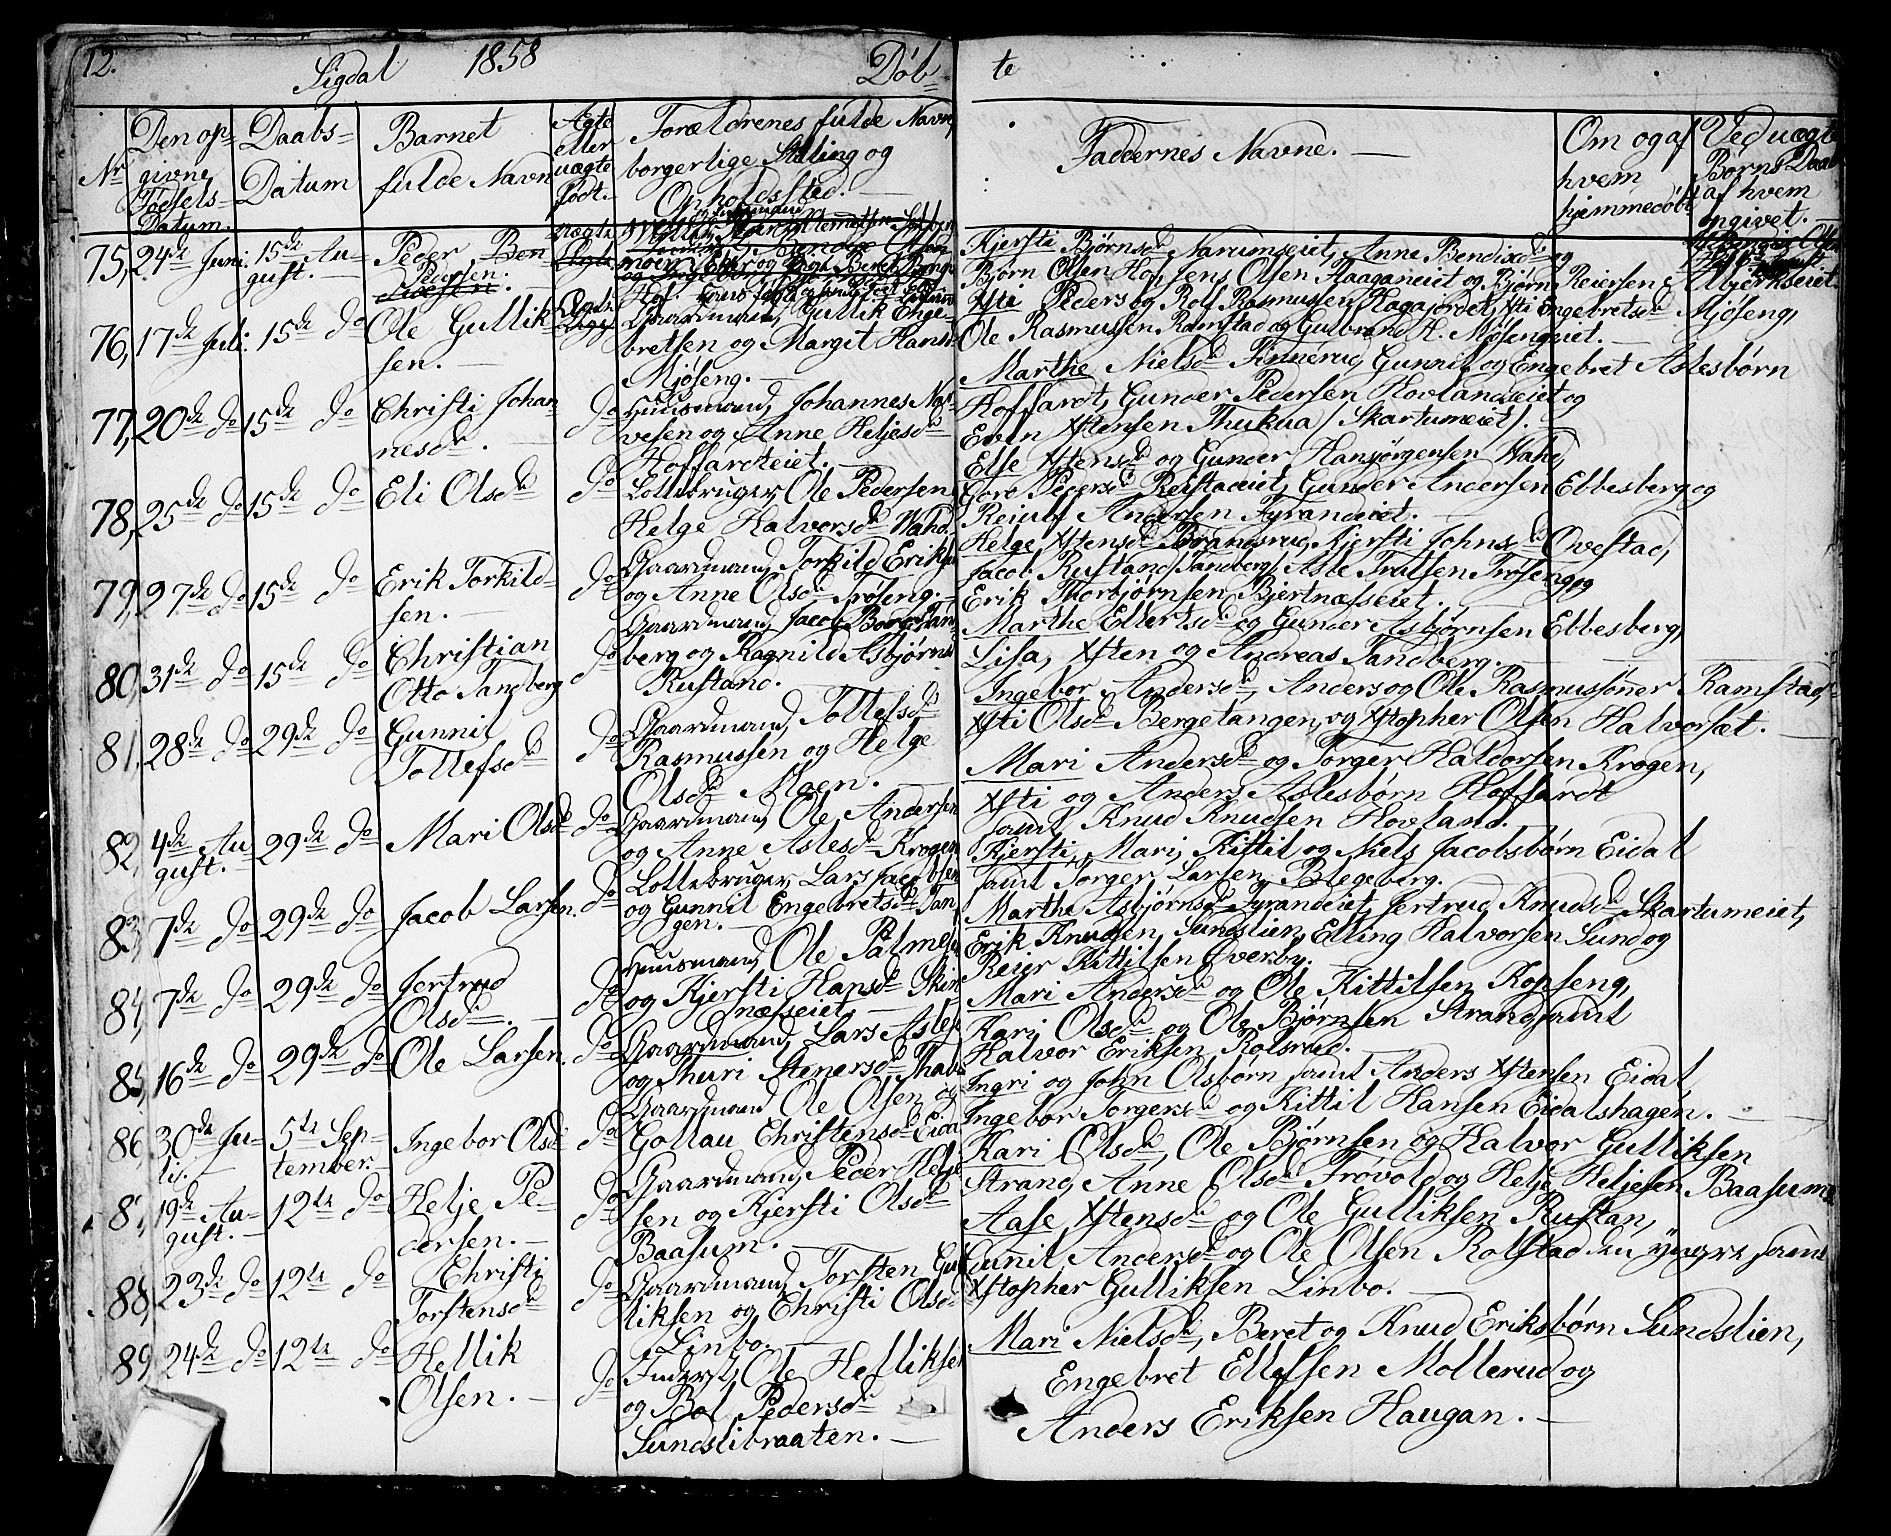 12.
Sigdal 1858 Døb= te
Nr
Den op=
givne
Fødsels
Datum.
Daabs=
Datum
Barnet
fulde Navn
Ægte
eller
uægte
født.
Forældrenes fulde Navn,
borgerlige Stilling og
Opholdssted
Faddernes Navne.
Om og af
hvem
hjemmedøbt
Ved uægte
Børns Daab
af hvem
angivet.
75, 24de Juni. 15de Au=
gust.
Peder Ben
Pedersen.
uægte
Kjersti Bjørnsdr Narumseiet, Anne Bendixdr og
Bjørn Olsen Hof, Jens Olsen Haaganeiet og Bjørn Reiersen
Bjerkseiet
76, 17de Juli. 15de do
Ole Gullik
sen.
Gaardmand, Gullik Enge=
bretsen og Margit Hansdr
Mjøseng.
Xsti Pedersdr og Rolf Rasmussen Hagajordet, Xsti Engebretsdr Mjøseng,
Ole Rasmussen Ramstad og Gulbrand H. Mjøsengeiet.
77, 20de do 15de do
Christi Johan
nesdr.
do
Huusmand, Johannes Nar=
vesen og Anne Heljesdr
Hoffardteiet.
Marthe Nielsdr Finnerud, Gunnil og Engebret Aslesbørn
Hoffardt, Gunder Pedersen Hovlandseiet og
Even Xstensen Thukua /Skartumeiet/.
78, 25de do 15de do
Eli Olsdr
do
Lottebruger, Ole Pedersen
Helge Halvorsdr Wahd.
Else Xstensdr og Gunder Hansjørgensen Wahd,
Goro Pedersdr Reistadeiet, Gunder Andersen Ebbesberg og
Reiulf Andersen Fyrandeiet.
79, 27de do 15de do
Erik Torkild=
sen.
do
Gaardmand, Torkild Eriksen
og Anne Olsdr Trøseng.
Helge Xstensdr Brandsrud, Kjersti Johnsdr Ovestad,
Jacob Rustand /Sandberg/, Asle Trulsen Trøseng og
Erik Thorbjørnsen Bjertnæsseiet.
80, 31de do 15de do
Christian
Otto Sandberg
do
Gaardmand, Jacob Borg Sand
berg og Ragnild Asbjørnsdr
Rustand.
Marthe Ellertsdr og Gunder Asbjørnsen Ebbesberg,
Lisa, Xsten og Andreas Sandberg.
81, 28de do 29de do
Gunnil
Tollefsdr
do
Gaardmand, Tollefsdr
Rasmussen og Helge
Olsdr Moen.
Ingebor Andersdr, Anders og Ole Rasmussøner Ramstad,
Xsti Olsdr Bergetangen, og Xstopher Olsen Halvorsæt.
82, 4de Au
gust.
29de do
Mari Olsdr
do
Gaardmand, Ole Andersen
og Anne Aslesdr Krogen
Mari Andersdr og Torger Haldorsen Krogen,
Xsti og Anders Aslesbørn Hoffardt
samt Knud Knudsen Hovland.
83, 7de do 29de do
Jacob Larsen.
do
Lottebruger, Lars Jacobsen
og Gunnil Engebretsdr Tan
gen.
Kjersti, Mari, Kittil og Niels Jacobsbørn Eidal
samt Torger Larsen Blegeberg.
84, 7de do 29de do
Jertrud
Olsdr.
do
Huusmand, Ole Palmesen
og Kjersti Hansdr Skin
næsseiet
Marthe Asbjørnsdr Fyrandeiet, Jertrud Knudsdr Skartumeiet,
Erik Knudsen, Sundslien, Elling Halvorsen Sund og
Reier Kittilsen Overby.
85, 16de do 29de do
Ole Larsen.
do
Gaardmand, Lars Aslesen
og Thuri Stenersdr Thab
Mari Andersdr og Ole Kittilsen Kopseng,
Kari Olsdr og Ole Bjørnsen Strand samt
Halvor Eriksen Rolsrud.
86, 30de Ju=
li.
5te Sep=
tember.
Ingebor Olsdr
do
Gaardmand Ole Olsen og
Gollau Christensdr Eidal
Ingri og John Olsbørn samt Anders Xstensen Eidal,
Ingebor Torgersdr og Kittil Hansen Eidalshagen.
87, 19de Au=
gust.
12te do
Helje Pe=
dersen.
do
Gaardmand, Peder Helje
sen og Kjersti Olsdr
Baasum.
Kari Olsdr, Ole Bjørnsen og Halvor Gulliksen
Strand, Anne Olsdr Frøvold og Helje Heljesen Baasum.
88, 23de do 12te do
Christi
Torstensdr
do
Gaardmand, Torsten Gul
liksen og Christi Olsdr
Linbo.
Aase Xstensdr og Ole Gulliksen Rustan,
Gunnil Andersdr og Ole Olsen Rolstad den yngre samt
Xstopher Gulliksen Linbo.
89, 24de do 12te do
Hellik
Olsen.
do
Inderst, Ole Helliksen
og Bol Pedersdr
Sundslibraaten.
Mari Nielsdr, Beret og Knud Eriksbørn Sundslien,
Engebret Ellefsen Mollerud og
Anders Eriksen Haugan.